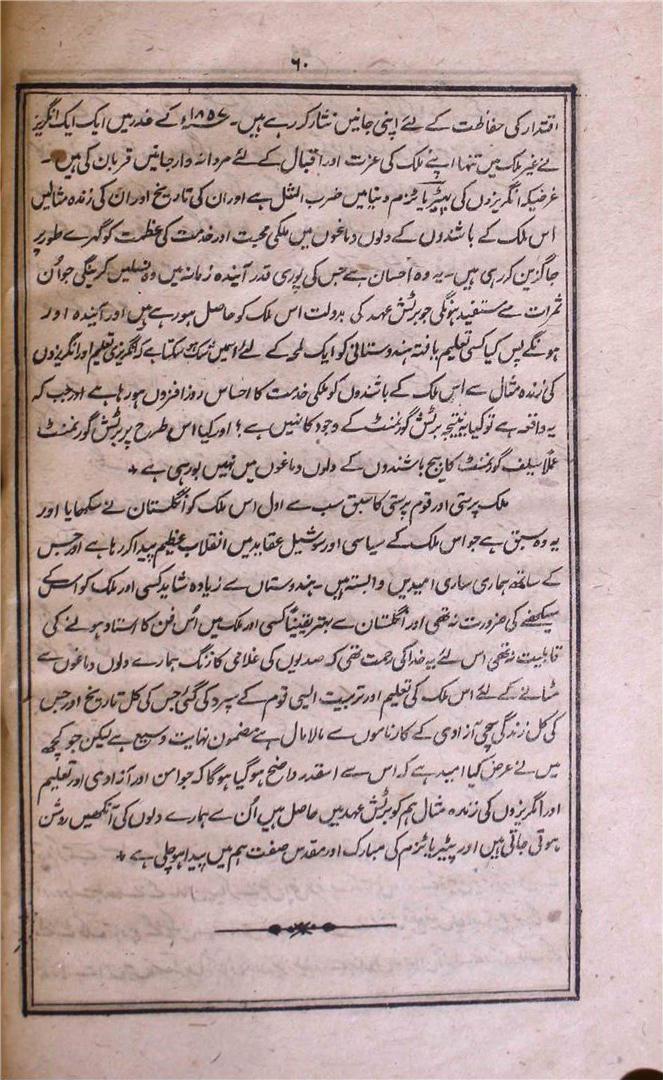 ۶۰
اقتدار کی حفاظت کے لئے اپنی جانیں نثار کر رہے ہیں۔ ۱۸۵۷ء کے غدر میں ایک ایک انگریز
نے غیر ملک میں تنہا اپنے ملک کی عزت اور اقبال کے لئے مردانہ وار جانیں قربان کی ہیں۔
غرضیکہ انگریزوں کی پیٹریاٹزم دنیا میں ضرب المثل ہے اور ان کی تاریخ اور ان کی زندہ مثالیں
اس ملک کے باشندوں کے دلوں دماغوں میں ملکی محبت اور خدمت کی عظمت کو گہرے طور پر
جاگزین کر رہی ہیں۔ یہ وہ احسان ہے جس کی پوری قدر آیندہ زمانہ میں وہ نسلیں کرینگی جو اُن
ثمرات سے مستفید ہونگی جو برٹش عہد کی بدولت اس ملک کو حاصل ہو رہے ہیں اور آیندہ اور
ہونگے پس کیا کسی تعلیم یافتہ ہندوستانی کو ایک لمحہ کے لئے اسمیں شک ہو سکتا ہے کہ انگریزی تعلیم اور انگریزوں
کی زندہ مثال سے اس ملک کے باشندوں کو ملکی خدمت کا احساس روز افزوں ہو رہا ہے اور جب کہ
یہ واقعہ ہے تو کیا یہ نتیجہ برٹش گورنمنٹ کے وجود کا نہیں ہے؟ اور کیا اس طرح پر برٹش گورنمنٹ
عملاً سیلف گورنمنٹ کا بیج باشندوں کے دلوں دماغوں میں نہیں بو رہی ہے +
ملک پرستی اور قوم پرستی کا سبق سب سے اول اس ملک کو انگلستان نے سکھایا اور
یہ وہ سبق ہے جو اس ملک کے سیاسی اور سوشیل عقاید میں انقلاب عظیم پیدا کر رہا ہے اور جس
کے ساتھ ہماری ساری امیدیں وابستہ ہیں۔ ہندوستاں سے زیادہ شاید کسی اور ملک کو اسکے
سیکھنے کی ضرورت نہ تھی اور انگلستان سے بہتر یقیناً کسی اور ملک میں اُس فن کا استاد ہونے کی
قابلیت نہ تھی اس لئے یہ خدا کی رحمت تھی کہ صدیوں کی غلامی کا زنگ ہمارے دلوں دماغوں سے
مٹانے کے لئے اس ملک کی تعلیم اور تربیت ایسی قوم کے سپرد کی گئی جس کی کل تاریخ اور جس
کی کل زندگی سچی آزادی کے کارناموں سے مالا مال ہے مضمون نہایت وسیع ہے لیکن جو کچھ
میں نے عرض کیا امید ہے کہ اس سے اسقدر واضح ہو گیا ہوگا کہ جو امن اور آزادی اور تعلیم
اور انگریزوں کی زندہ مثال ہم کو برٹش عہد میں حاصل ہیں اُن سے ہمارے دلوں کی آنکھیں روشن
ہوتی جاتی ہیں اور پیٹریاٹزم کی مبارک اور مقدس صفت ہم میں پیدا ہو چلی ہے +